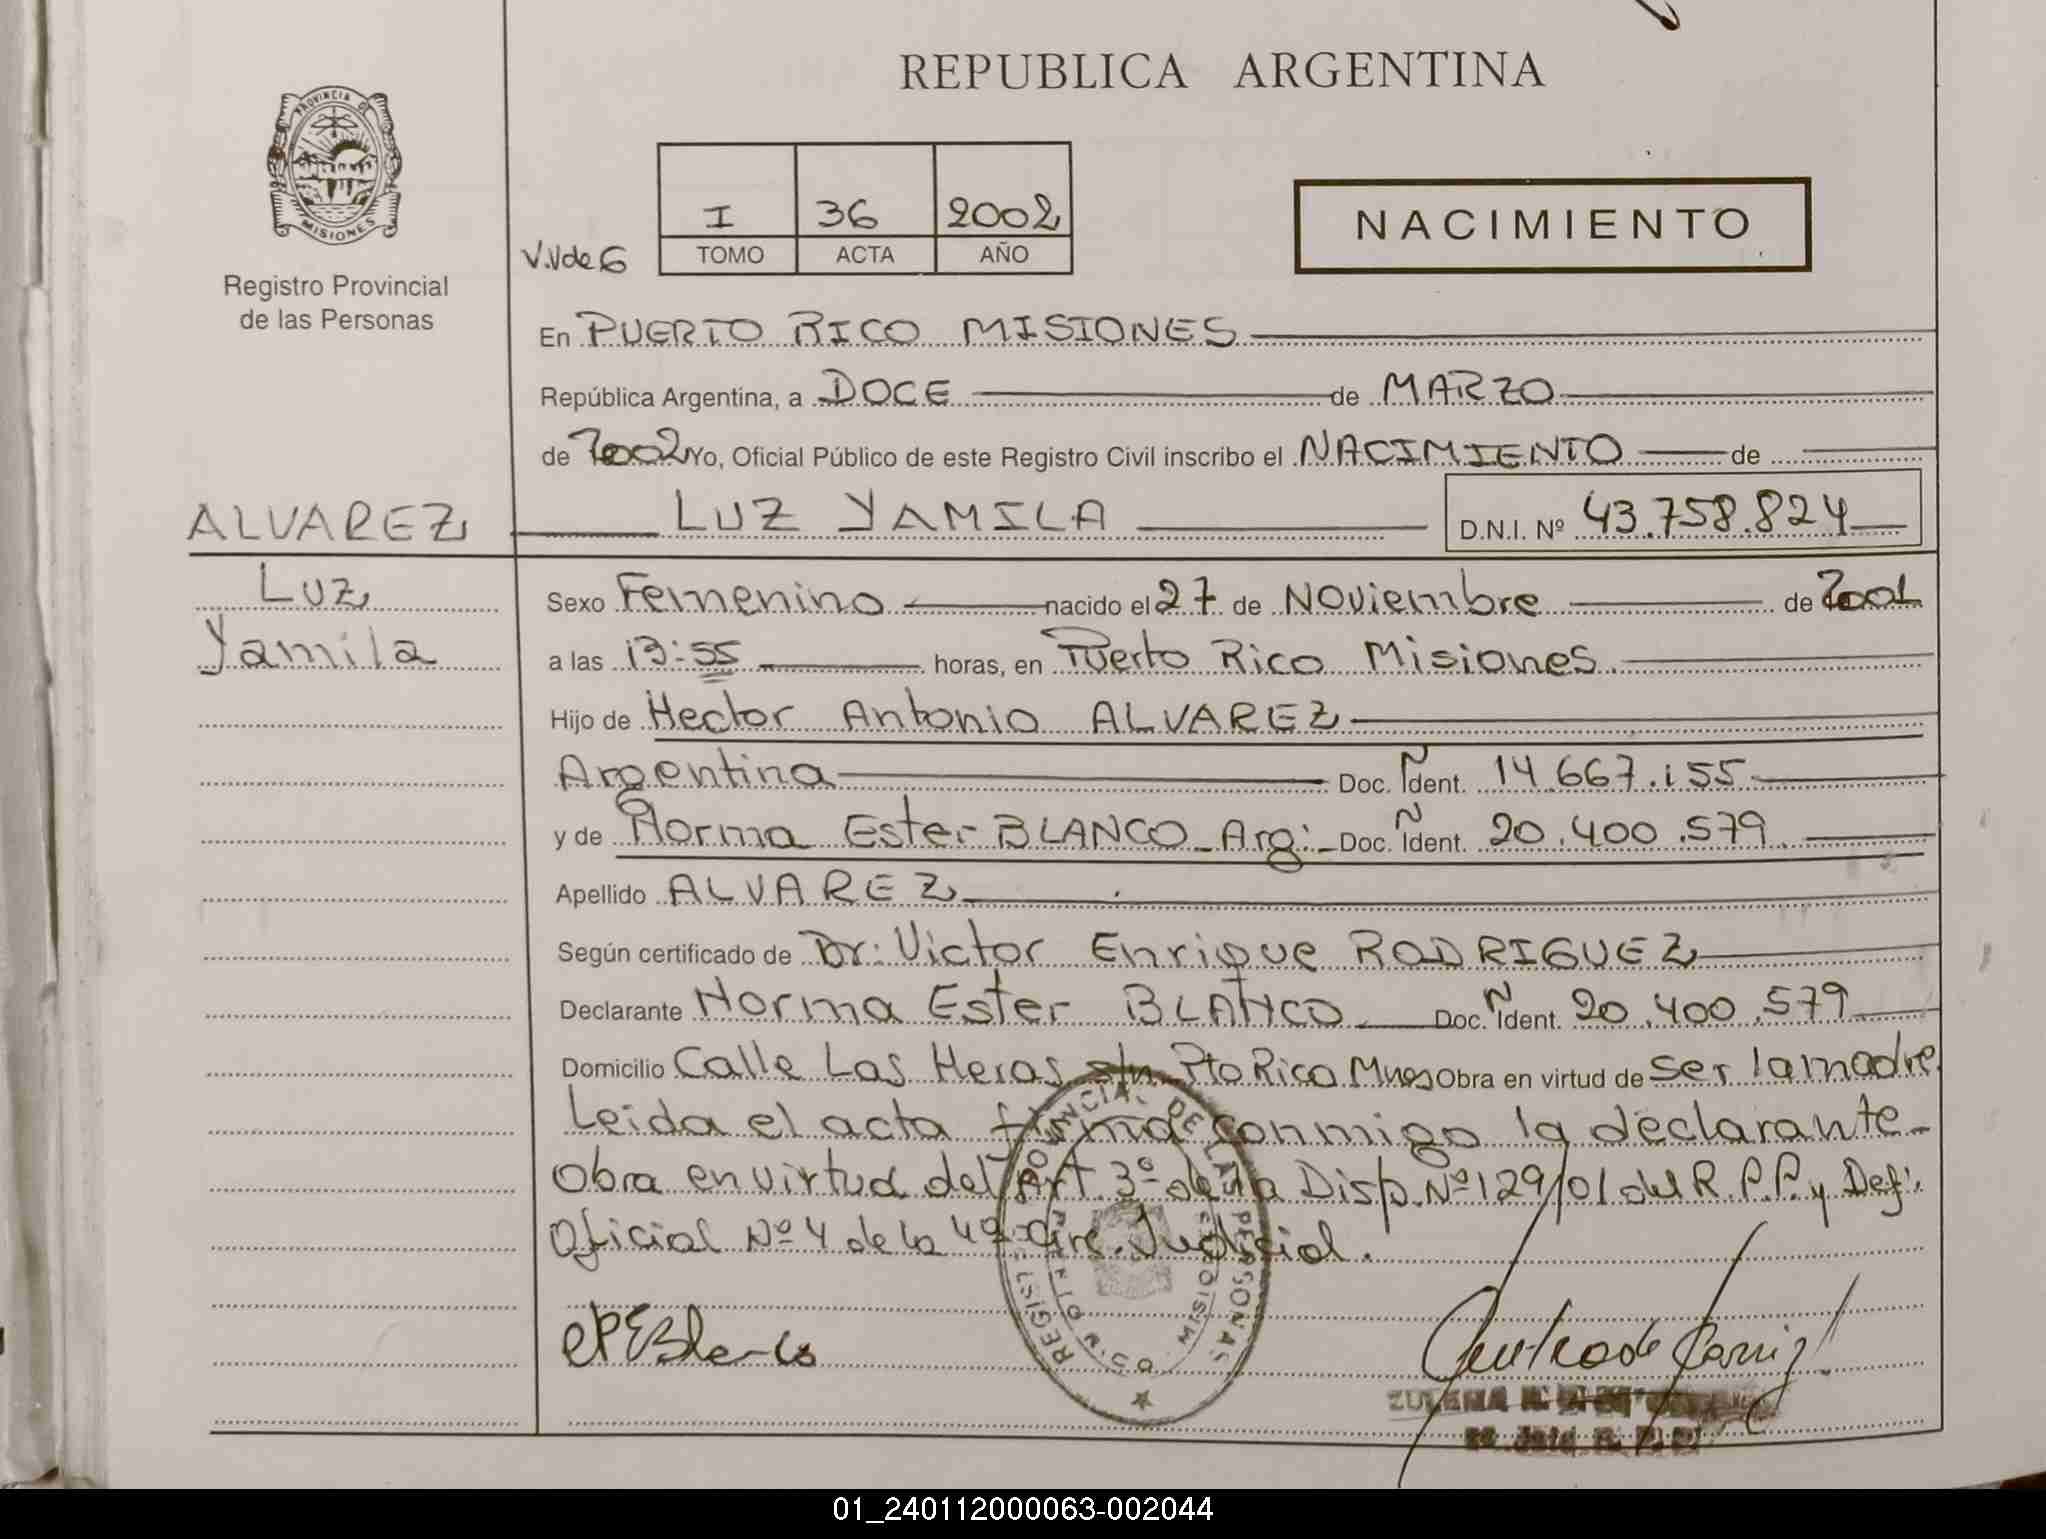 REPUBLICA ARGENTINA
PROVINCIA DE
MISIONES
Registro Provincial
de las Personas
I 36 2002
V.V de G TOMO ACTA AÑO
NACIMIENTO
En PUERTO RICO MISIONES
República Argentina, a DOCE de MARZO
de 2002 Yo, Oficial Público de este Registro Civil inscribo el NACIMIENTO de
ALVAREZ LUZ YAMILA D.N.I. Nº 43.758.824
Luz
Yamila
Sexo Femenino nacido el 27 de Noviembre de 2001
a las 13:55 horas, en Puerto Rico Misiones
Hijo de Hector Antonio ALVAREZ
Argentina Doc. Ñ Ident. 14.667.155
y de Norma Ester BLANCO Arg: Doc. Ñ Ident. 20.400.579
Apellido ALVAREZ
Según certificado de Dr: Victor Enrique RODRIGUEZ
Declarante Norma Ester BLANCO Doc. Ñ Ident. 20.400.579
Domicilio Calle Las Heras s/n Pto Rico Mnes Obra en virtud de ser la madre.
Leida el acta firma conmigo la declarante-
Obra en virtud del Art. 3º de la Disp. Nº 129/01 del R.P.P. y Def.
Oficial Nº 4 de la 4ª Circ. Judicial.
REGISTRO PROVINCIAL DE LAS PERSONAS
MISIONES
ZULEMA
01_240112000063-002044